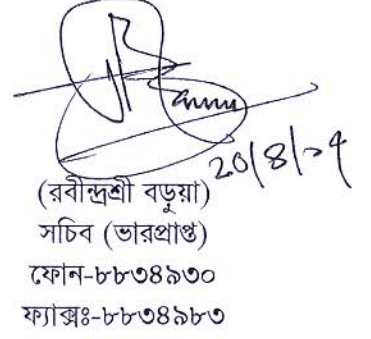 (রবীন্দ্রশ্রী বড়ুয়া)
সচিব (ভারপ্রাপ্ত)
ফোন-৮৮৩৪৯৩০
ফ্যাক্সঃ-৮৮৩৪৯৮৩